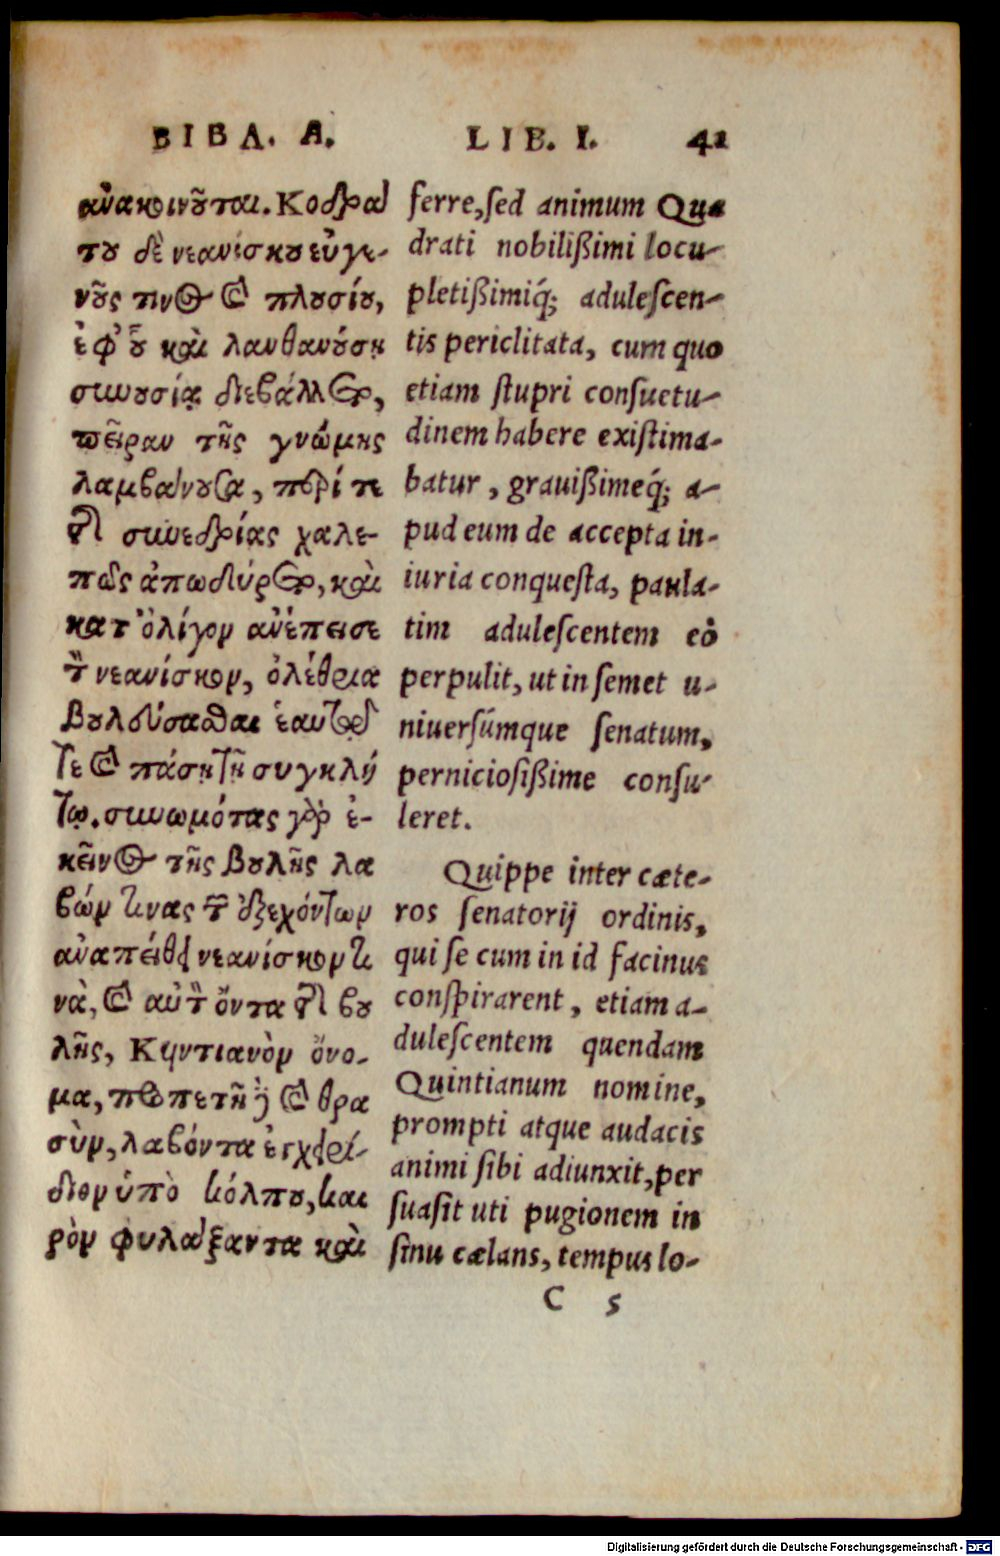 ΒΙΒΛ. Α.
ἀνακοινοῦται. Κοδρά
του δὲ νεανίσκου εὐγε-
νοῦς τινος καὶ πλουσίου,
ἐφ' οὗ καὶ λανθανούσῃ
συνουσίᾳ διεβάλλετο,
πεῖραν τῆς γνώμης
λαμβάνουσα, περί τε
τῆς συνεδρίας χαλε-
πῶς ἀπωδύρετο, καὶ
κατ' ὀλίγον ἀνέπεισε
τὸν νεανίσκον, ὀλέθρια
βουλεύσασθαι ἑαυτῷ
τε καὶ πάσῃ τῇ συγκλή
τῳ. συνωμότας γὰρ ἐ-
κεῖνος τῆς βουλῆς λα
βών τινας τῶν ἐξεχόντων
ἀναπείθει νεανίσκον τι
νὰ, καὶ αὐτὸν ὄντα τῆς βου
λῆς, Κυντιανὸν ὄνο-
μα, προπετῆ δὲ καὶ θρα
σὺν, λαβόντα ἐγχειρί-
διον ὑπὸ κόλπου, και
ρὸν φυλάξαντα καὶ
LIB. I. 41
ferre, sed animum Qua
drati nobilißimi locu-
pletißimiq́; adulescen-
tis periclitata, cum quo
etiam stupri consuetu-
dinem habere existima-
batur, grauißimeq́; a-
pud eum de accepta in-
iuria conquesta, paula-
tim adulescentem eò
perpulit, ut in semet u-
niuersúmque senatum,
perniciosißime consu-
leret.
Quippe inter cæte-
ros senatorij ordinis,
qui se cum in id facinus
conspirarent, etiam a-
dulescentem quendam
Quintianum nomine,
prompti atque audacis
animi sibi adiunxit, per
suasit uti pugionem in
sinu cælans, tempus lo-
C 5
Digitalisierung gefördert durch die Deutsche Forschungsgemeinschaft - DFG